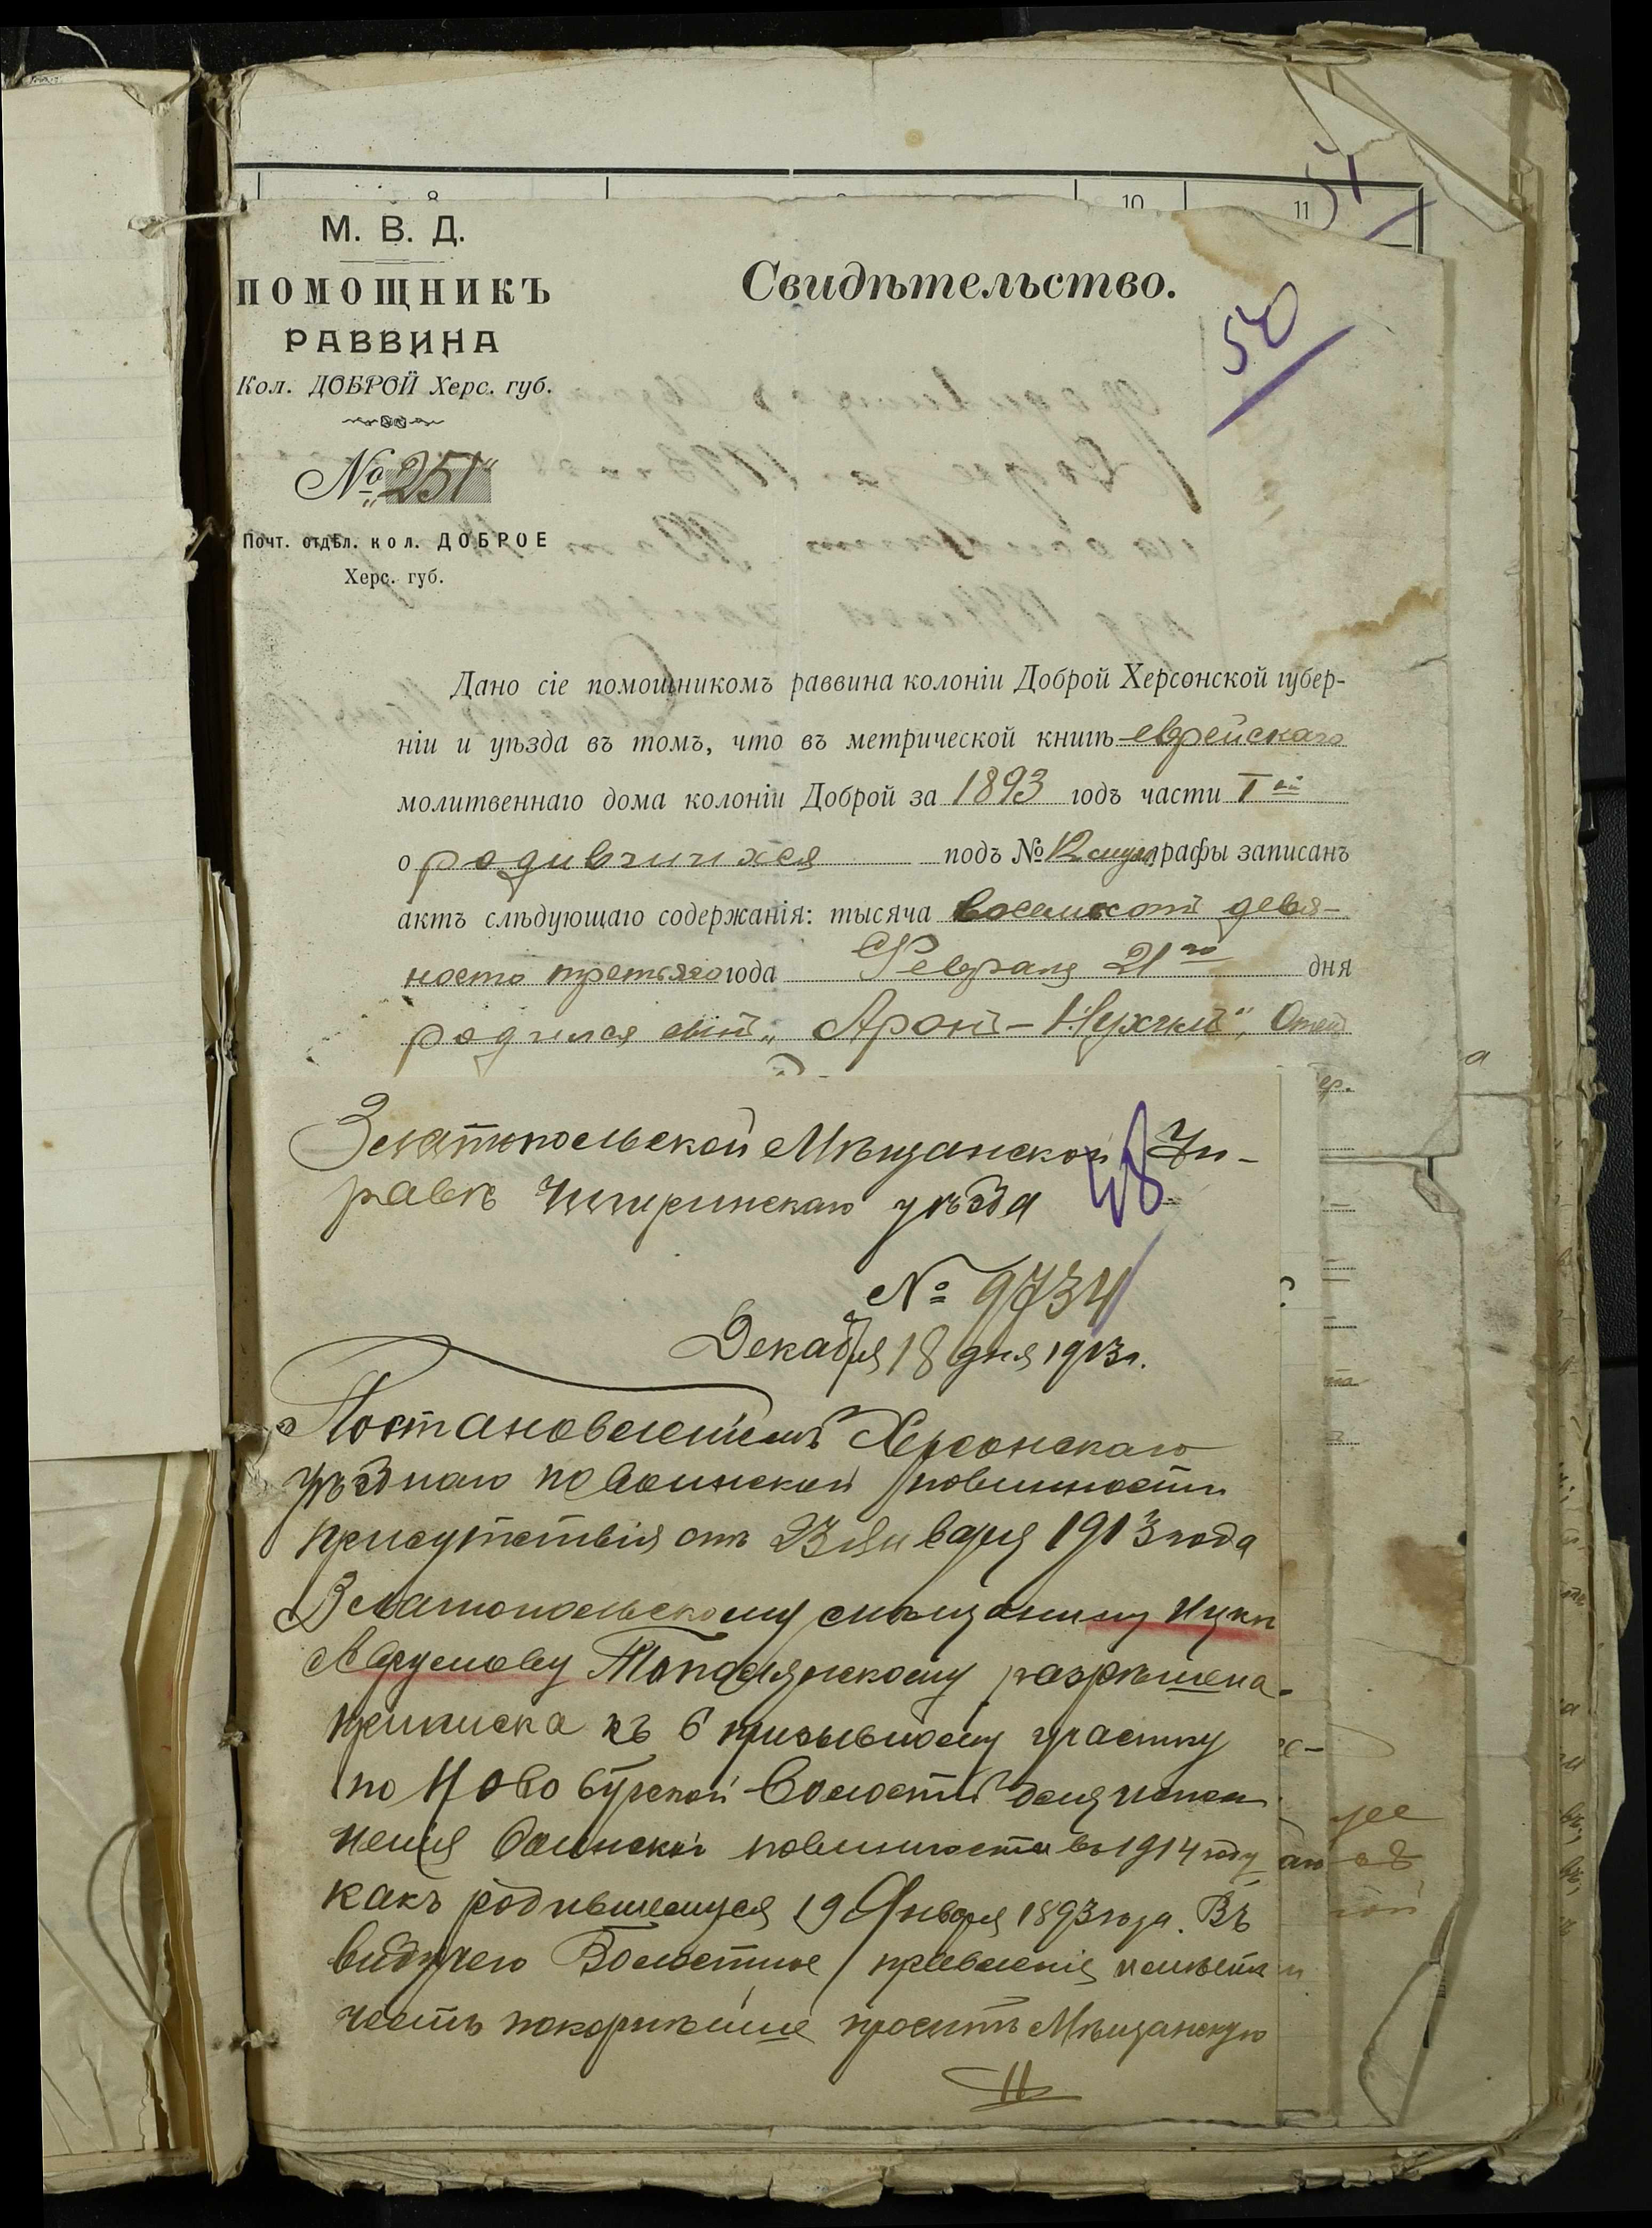 10
11
51
М. В. Д.
ПОМОЩНИКЪ
РАВВИНА
Кол. ДОБРОЙ Херс. губ.
№ 251
Почт. отдѣл. кол. ДОБРОЕ
Херс. губ.
Свидѣтельство.
50
Дано сіе помощникомъ раввина колоніи Доброй Херсонской губер-
ніи и уѣзда въ томъ, что въ метрической книгѣ еврейскаго
молитвеннаго дома колоніи Доброй за 1893 годъ части I ой
о родившихся подъ № 12 графы записанъ
актъ слѣдующаго содержанія: тысяча восемьсотъ девя-
носто третьяго года Февраля 21 го дня
родился сынъ „Аронъ-Нухимъ", Отецъ
Златопольской Мѣщанской Уп-
равѣ Чигиринскаго уѣзда
48
№ 9734
Декабря 18 дня 1913 г.
Постановленіемъ Херсонскаго
уѣзднаго по воинской повинности
присутствія отъ 23 Января 1913 года
Златопольскому мѣщанину Ицку
Аврумову Тополянскому разрѣшена
приписка къ 6 призывному участку
по Ново Бугской волости для испол
ненія воинской повинности въ 1914 году
какъ родившемуся 19 Января 1893 года. Въ
виду чего Волостное правленіе имѣетъ
честь покорнѣйше просить Мѣщанскую